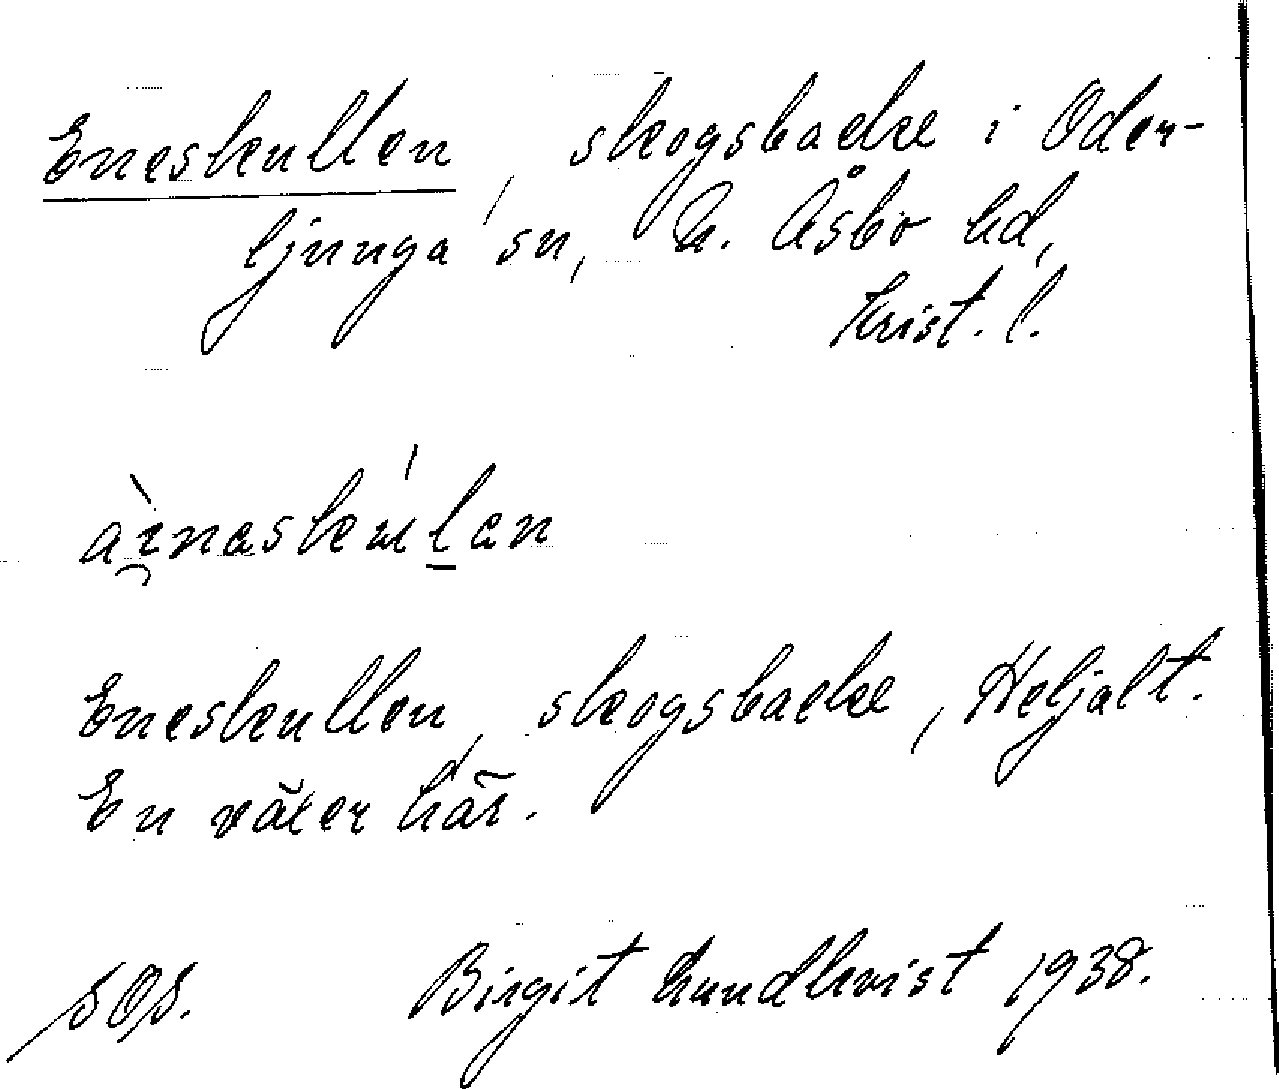 Eneskullen, skogsbacke i Oder-
ljunga sn, N. Åsbo hd,
Krist. l.
àinaskúlan
Eneskullen, skogsbacke, Heljalt.
En växer här.
SOS. Birgit Lundkvist 1938.